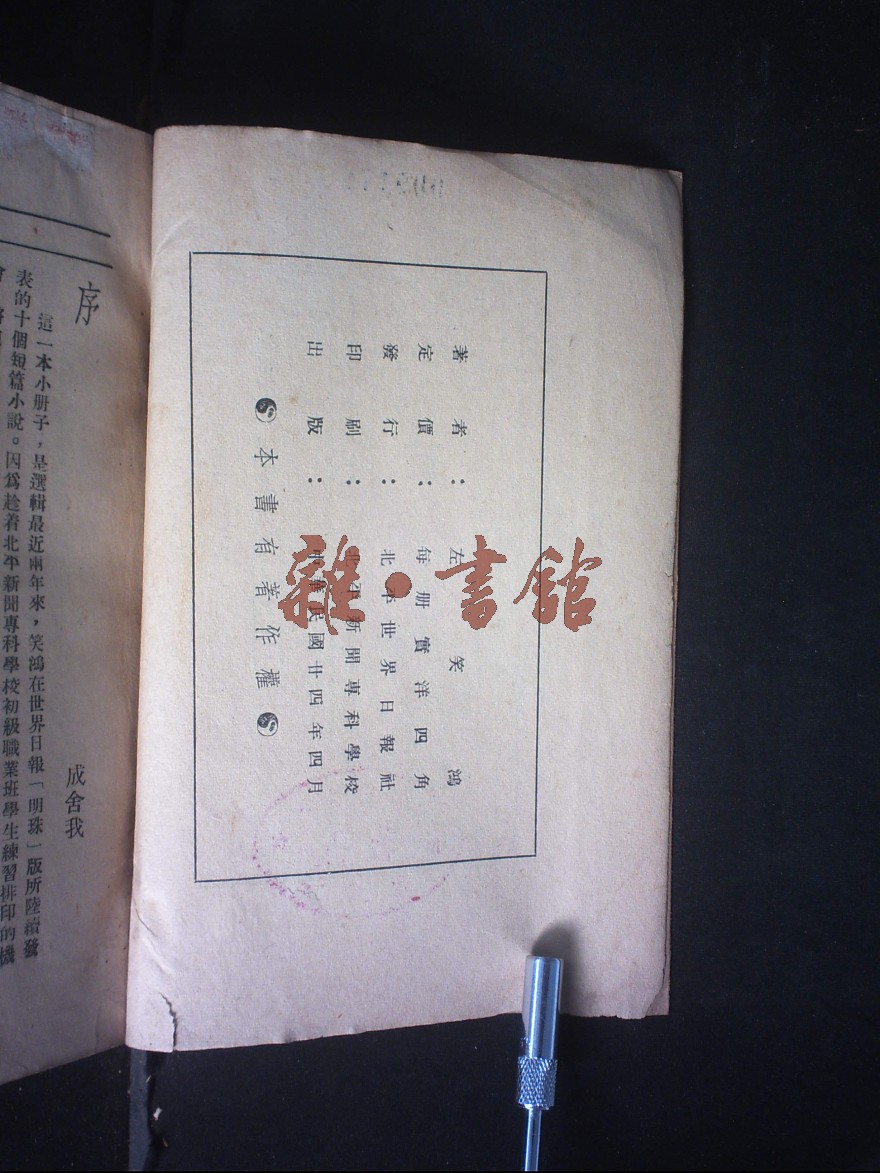 著者：左笑鴻
定價：每册實洋四角
發行：北平世界日報社
印刷：北平新聞專科學校
出版：中華民國廿四年四月
本書有著作權
雜·書館
序
成舍我
這一本小册子，是選輯最近兩年來，笑鴻在世界日報「明珠」版所陸續發
表的十個短篇小說。因爲趁着北平新聞專科學校初級職業班學生練習排印的機